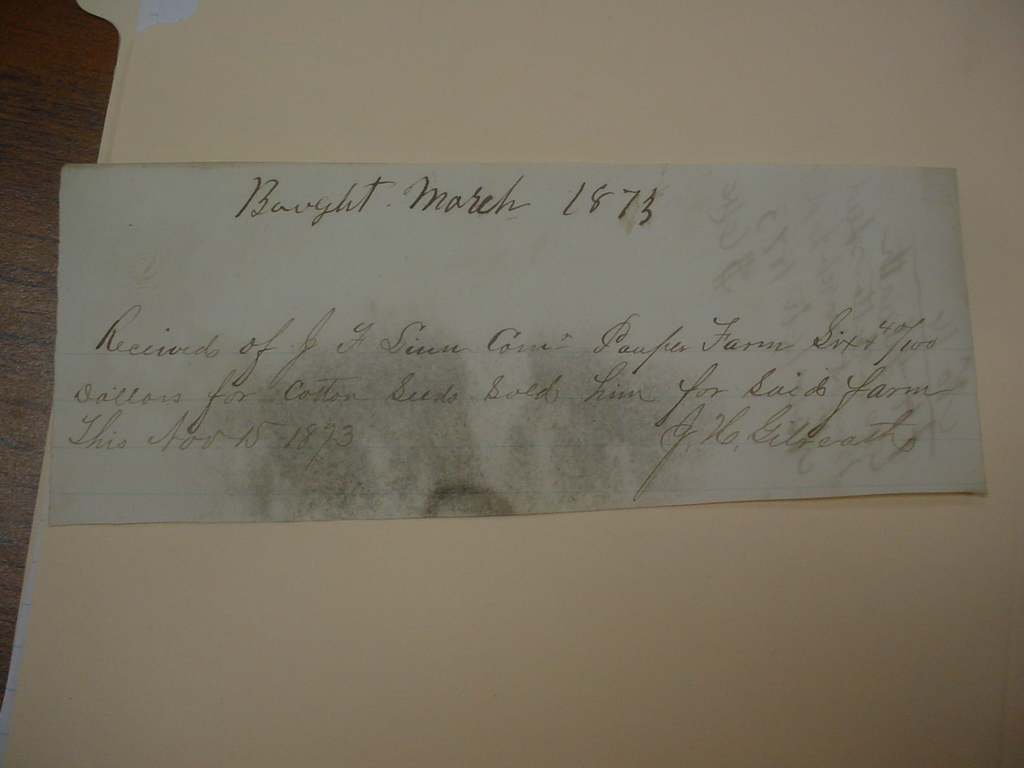 Bought March 1873
Received of J F Linn Comr Pauper Farm Six & 40/100
Dollars for Cotton Seeds Sold him for Said farm
This Nov 15 1873
J. H. Gilreath